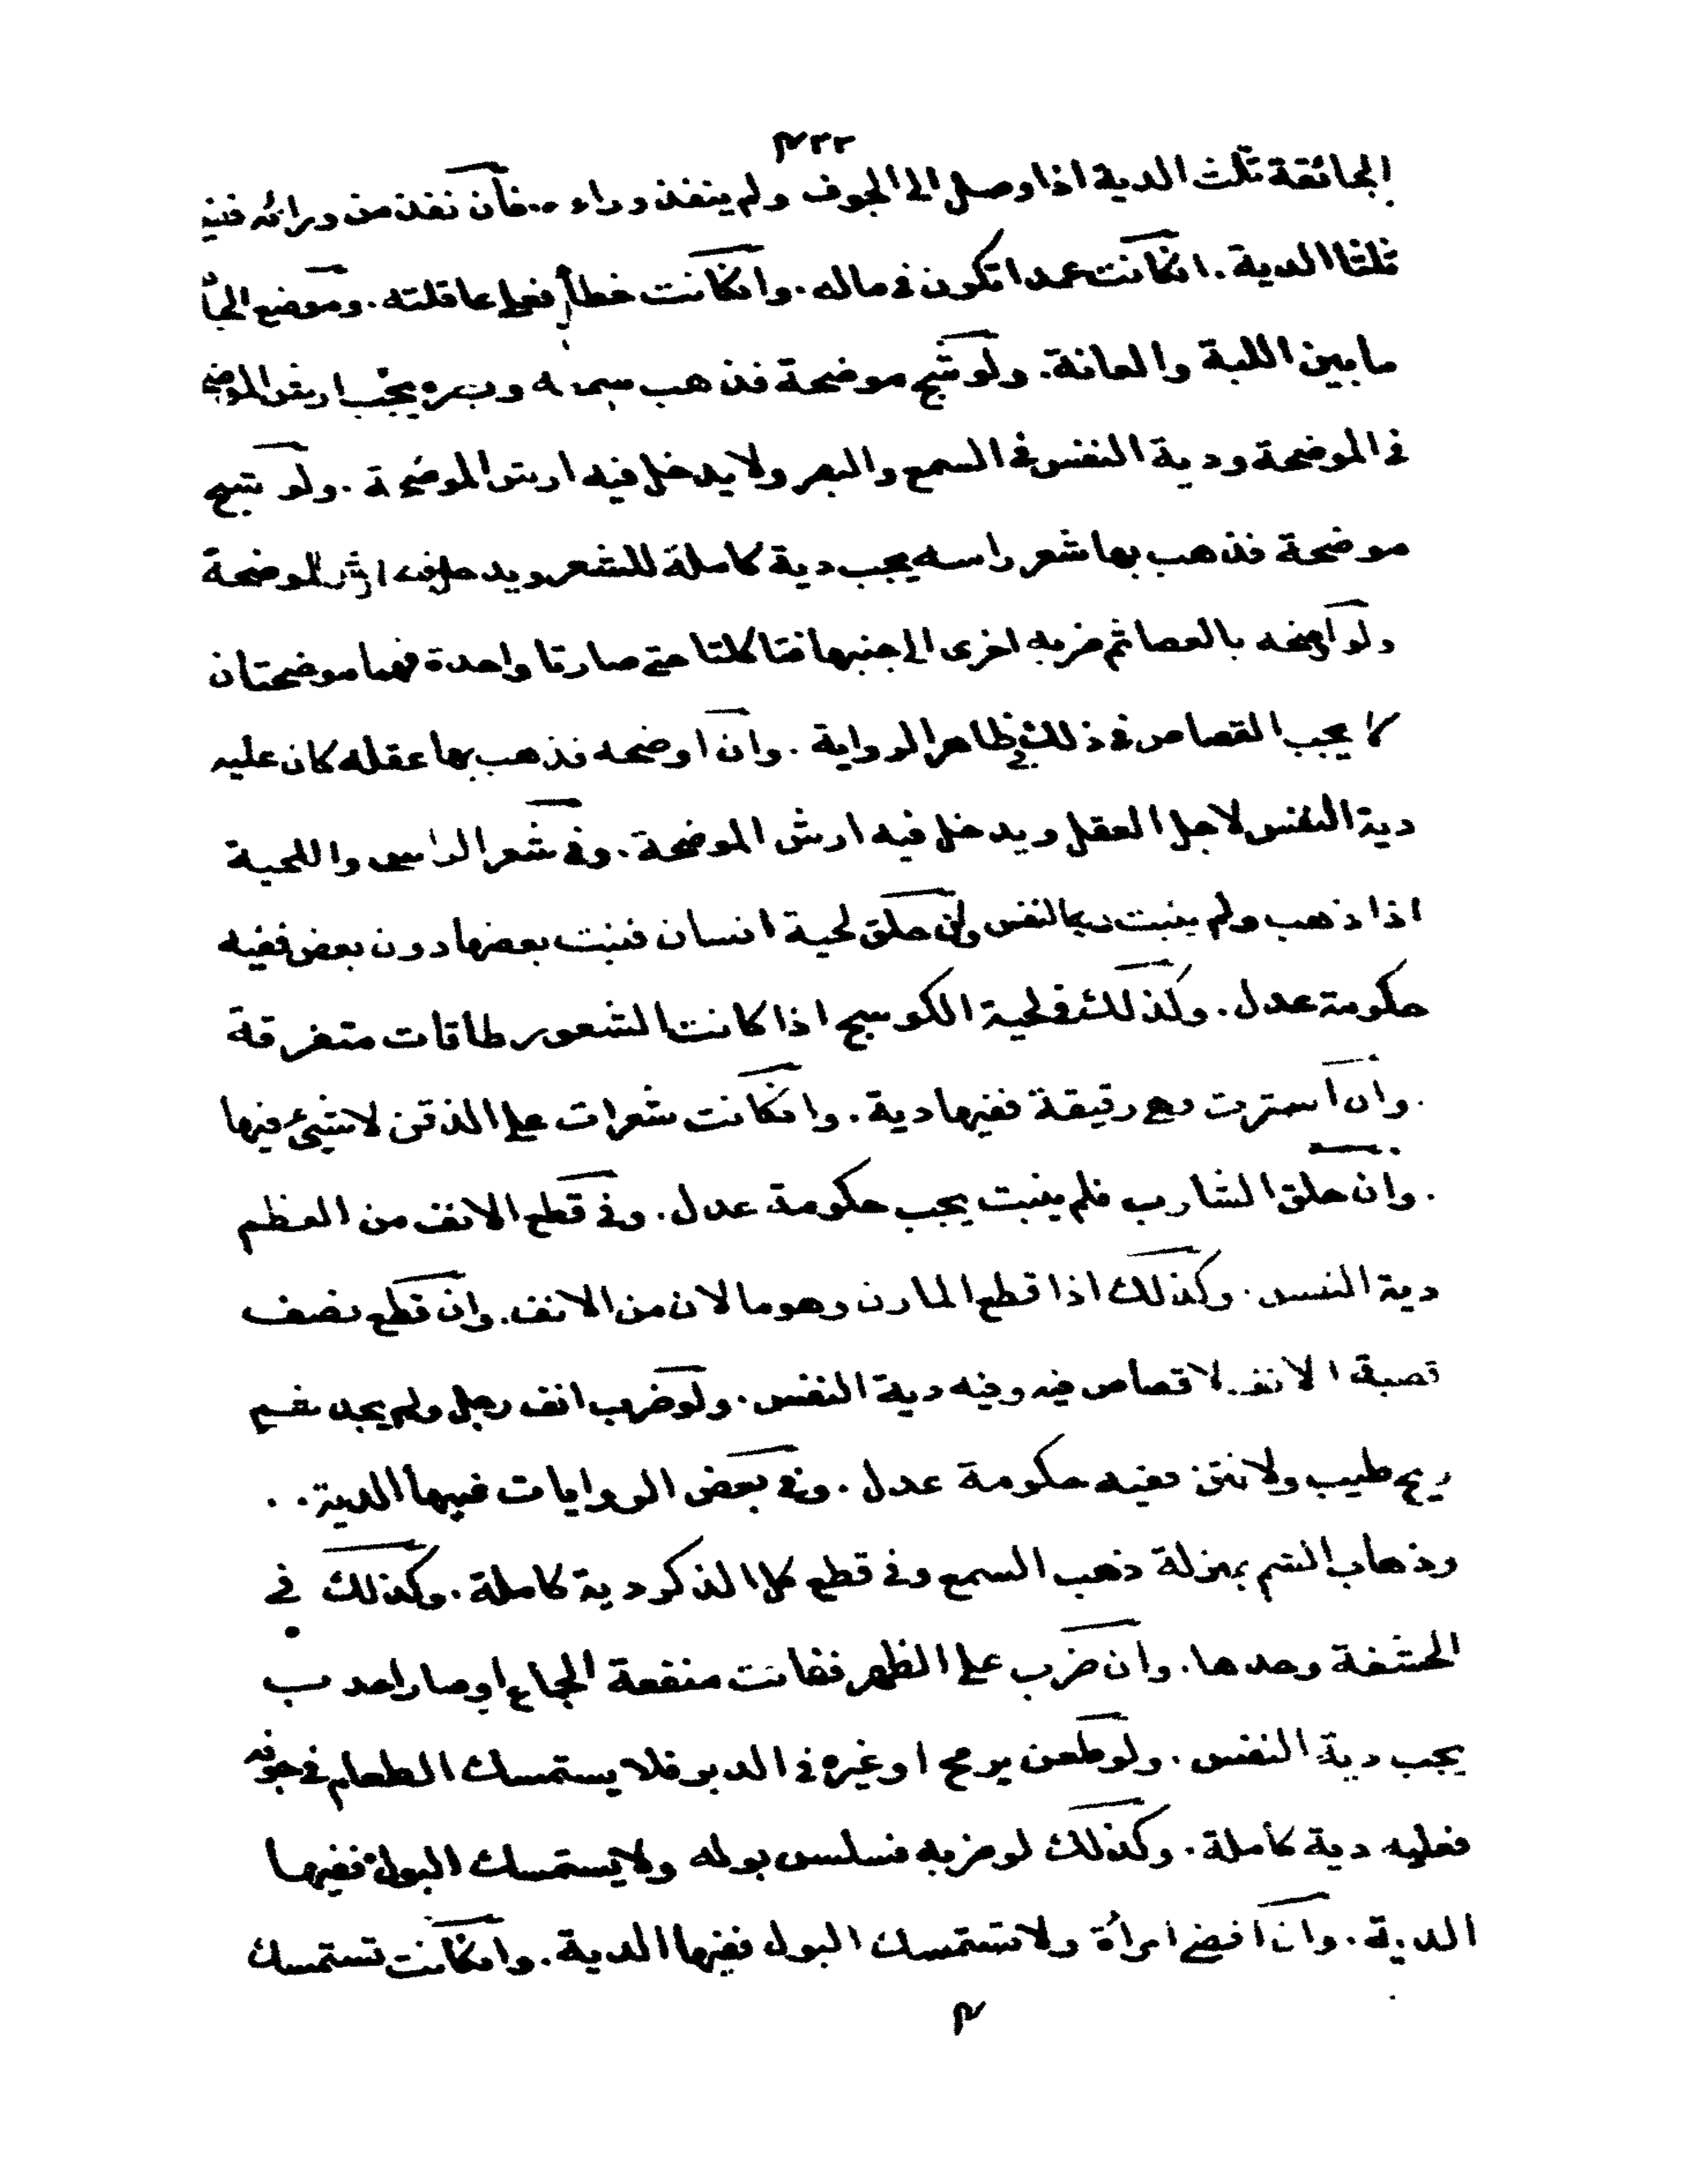 ٤٢٢
الجائفة ثلث الدية اذا وصل الى الجوف ولم ينفذ وراءه فان نفذ من ورائه ففيه
ثلثا الدية. انكانت عمدا تكون فى ماله. وانكانت خطأ فعلى عاقلته. وموضع
ما بين اللبة والعانة. ولو شج موضحة فذهب سمعه وبصره يجب ارش
فى الموضحة ودية النفس فى السمع والبصر ولا يدخل فيه ارش الموضحة. ولو شج
موضحة فذهب بها شعر راسه يجب دية كاملة للشعر ويدخل فيه ارش الموضحة
ولو اوضحه بالعصا ثم ضربه اخرى الى جنبها فتا كلتا حتى صارتا واحدة فهما موضحتان
لا يجب القصاص فى ذلك فى ظاهر الرواية. وان اوضحه فذهب بها عقله كان عليه
دية النفس لاجل العقل ويدخل فيه ارش الموضحة. وفى شعر الراس واللحية
اذا ذهب ولم ينبت النفس حلق لحية انسان فنبت بعضها دون بعض ففيه
حكومة عدل. وكذلك فى لحية الكوسج اذا كانت الشعور طاقات متفرقة
. وان رقيقة ففيها دية. وانكانت شعرات على الذقن لا شئ فيها
. وان حلق الشارب فلم ينبت يجب حكومة عدل. وفى قطع الانف من العظم
دية النفس. وكذلك اذا قطع المارن وهو ما لان من الانف. وان قطع نصف
قصبة الانف لا قصاص فيه وفيه دية النفس. ولو ضرب انف رجل ولم يجد
ريح طيب ولا نتن ففيه حكومة عدل. وفى بعض الروايات فيها الدية. .
وذهاب الشم بمنزلة ذهب السمع وفى قطع كل الذكر دية كاملة. وكذلك فى
الحشفة وحدها. وان ضرب على الظهر ففاتت منفعة الجماع او صار احدب
يجب دية النفس. ولو طعن برمح او غيره فى الدبر فلا يستمسك الطعام فى جوفه
فعليه دية كاملة. وكذلك لو ضربه فسلس بوله ولا يستمسك البول ففيها
الدية. وان افضى امرأة ولا تستمسك البول ففيها الدية. وانكانت تستمسك